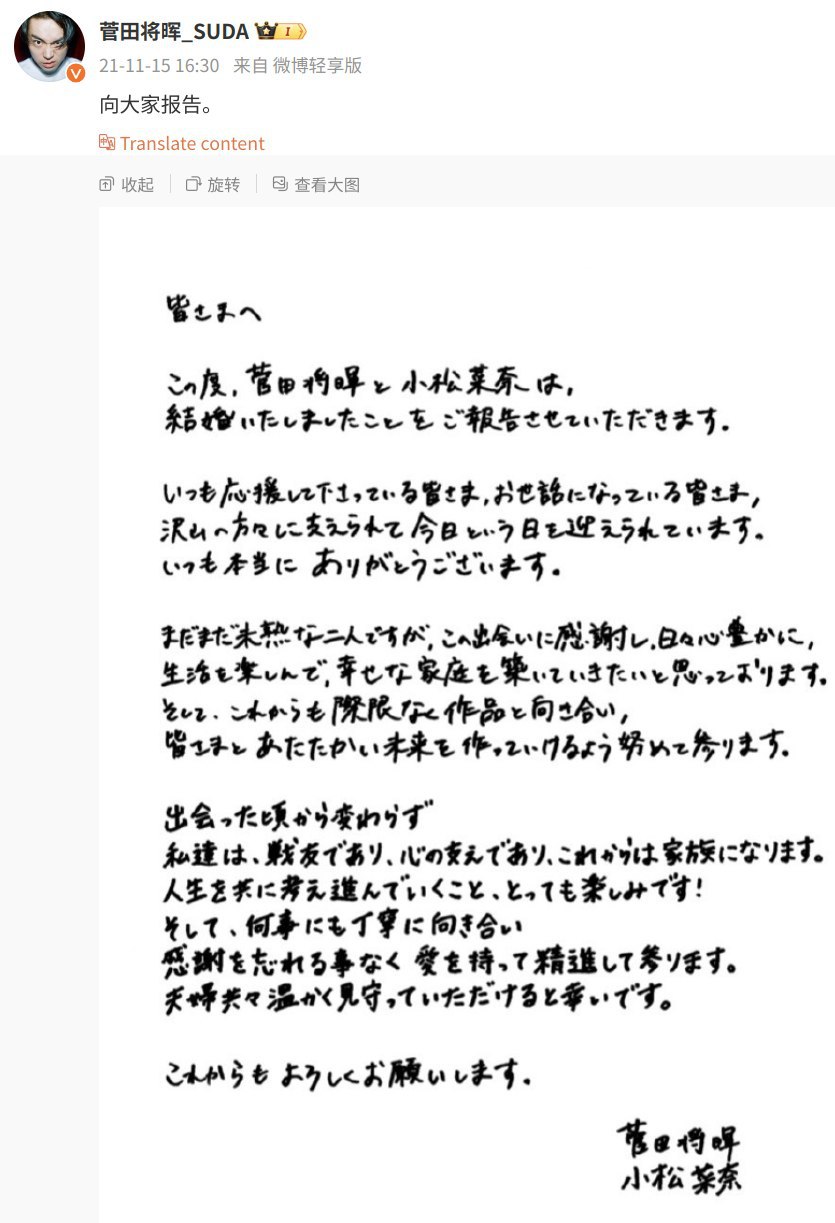 菅田将晖_SUDA I
21-11-15 16:30 来自 微博轻享版
向大家报告。
Translate content
收起 旋转 查看大图
皆さまへ
この度、菅田将暉と小松菜奈は、
結婚いたしましたことをご報告させていただきます。
いつも応援して下さっている皆さま、お世話になっている皆さま、
沢山の方々に支えられて今日という日を迎えられています。
いつも本当に ありがとうございます。
まだまだ未熟な二人ですが、この出会いに感謝し、日々心豊かに、
生活を楽しんで、幸せな家庭を築いていきたいと思っております。
そして、これからも際限なく作品と向き合い、
皆さまとあたたかい未来を作っていけるよう努めて参ります。
出会った頃から変わらず
私達は、戦友であり、心の支えであり、これからは家族になります。
人生を共に考え進んでいくこと、とっても楽しみです!
そして、何事にも丁寧に向き合い
感謝を忘れる事なく 愛を持って精進して参ります。
夫婦共々温かく見守っていただけると幸いです。
これからも よろしくお願いします。
菅田将暉
小松菜奈